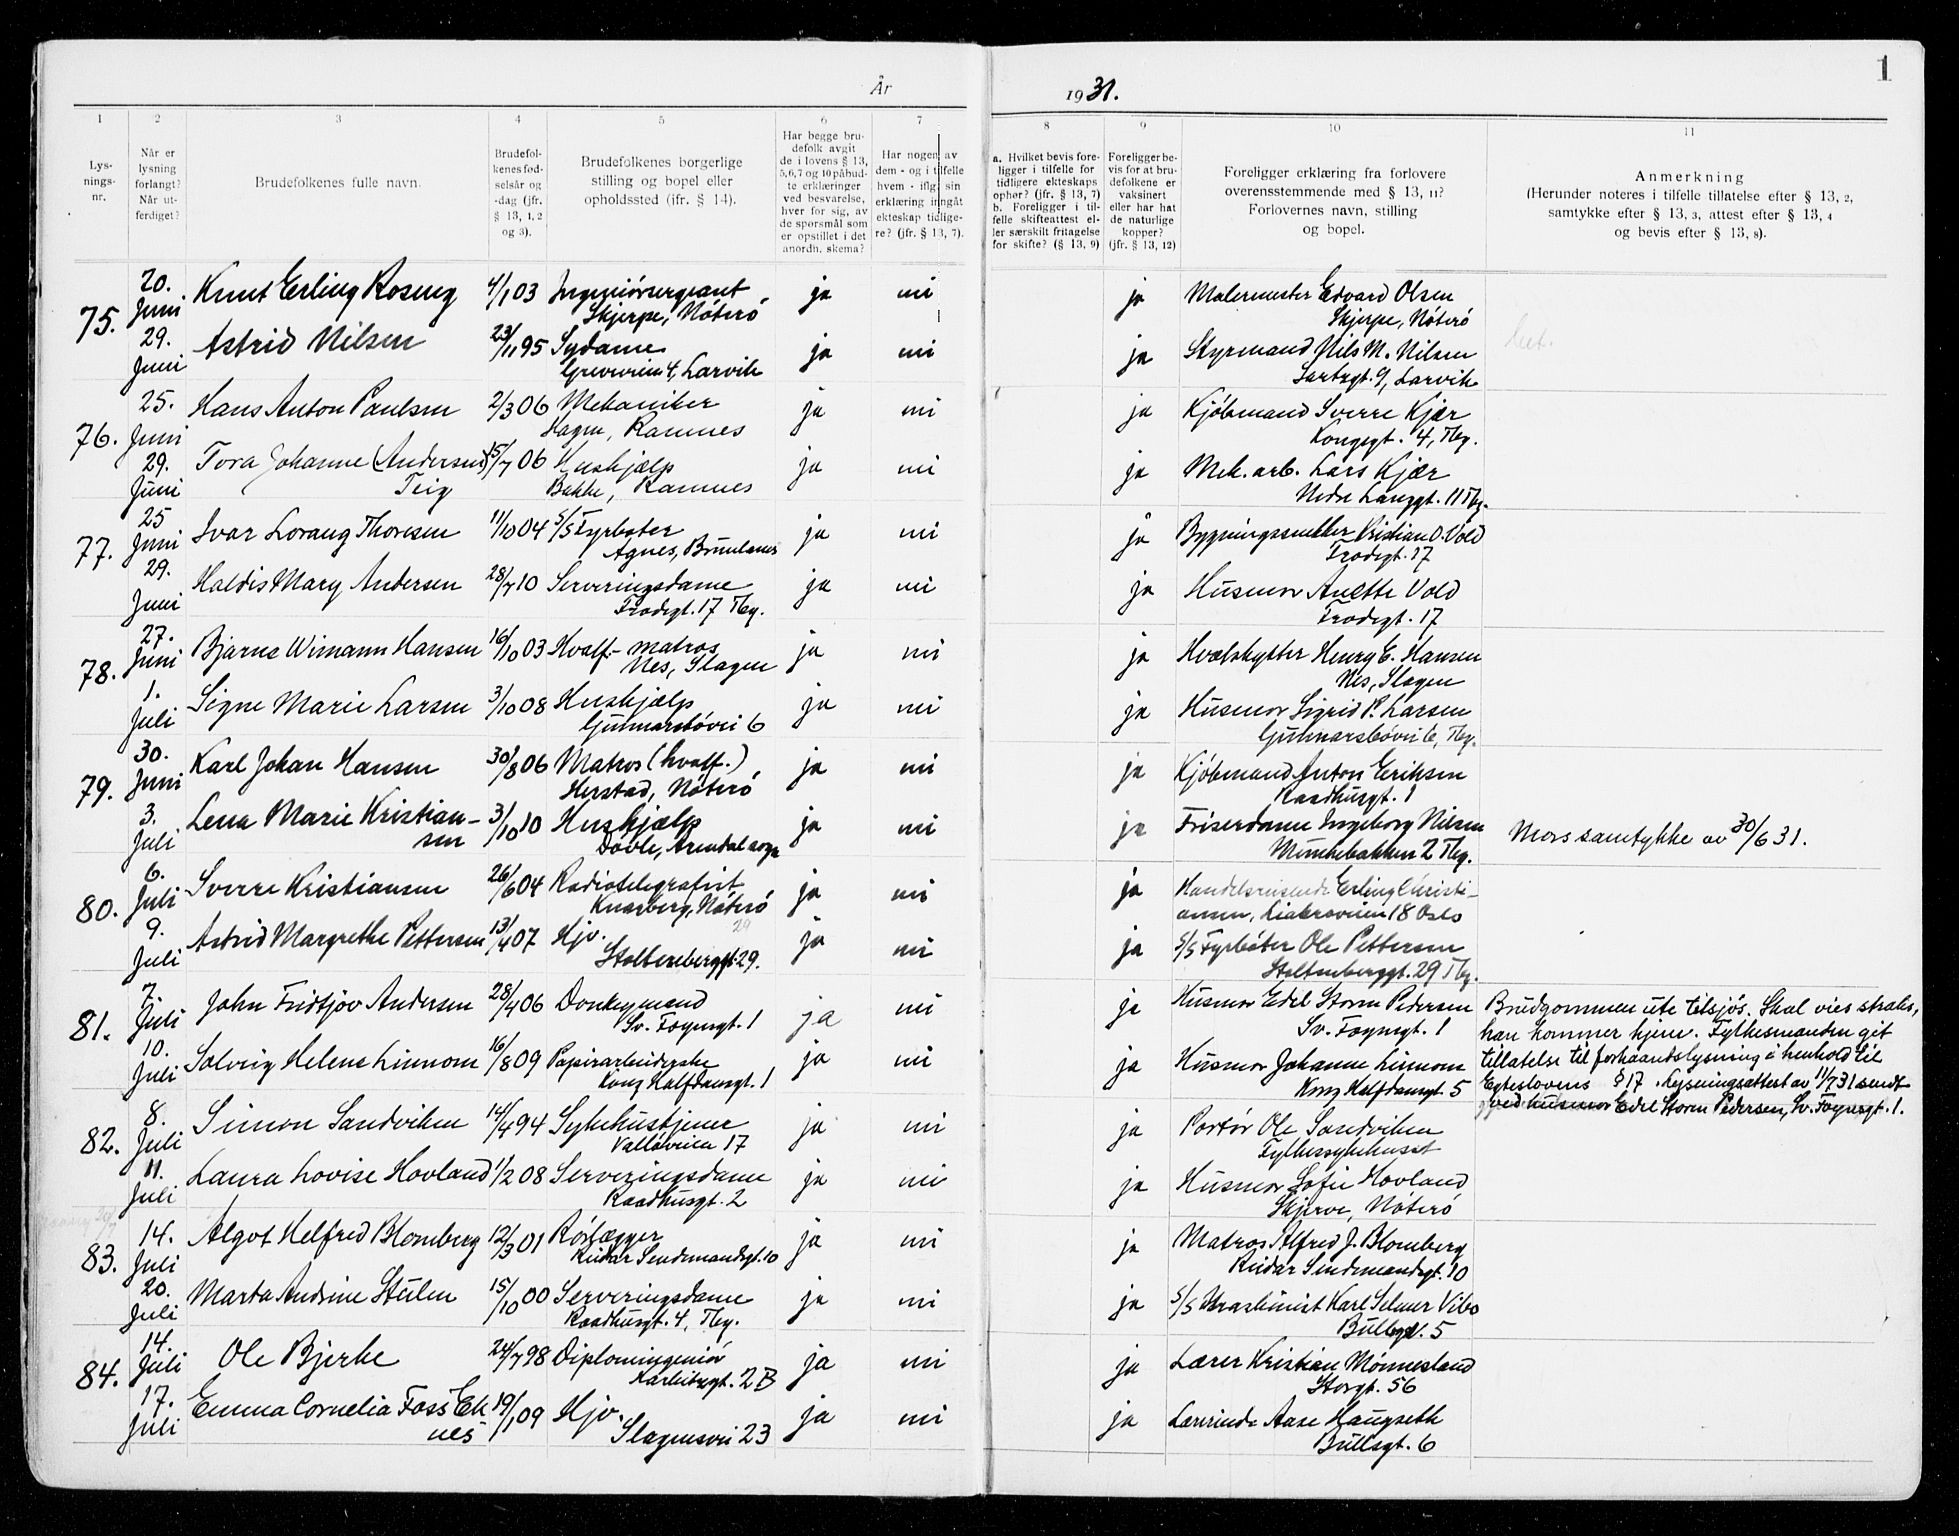 År
1931.
1
1 2 3 4 5 6 7 8 9 10 11
Lys-
nings-
nr.
Når er
lysning
forlangt?
Når ut-
ferdiget?
Brudefolkenes fulle navn.
Brudefol-
kenes fød-
selsår og
-dag (jfr.
§ 13, 1, 2
og 3).
Brudefolkenes borgerlige
stilling og bopel eller
opholdssted (jfr. § 14).
Har begge bru-
defolk avgit
de i lovens § 13,
5, 6, 7 og 10 påbud-
te erklæringer
ved besvarelse,
hver for sig, av
de spørsmål som
er opstillet i det
anordn. skema?
Har nogen av
dem - og i tilfelle
hvem - iflg. sin
erklæring inngåt
ekteskap tidlige-
re? (jfr. § 13, 7).
a. Hvilket bevis fore-
ligger i tilfelle for
tidligere ekteskaps
ophør? (jfr. § 13, 7)
b. Foreligger i til-
felle skifteattest el-
ler særskilt fritagelse
for skifte? (§ 13, 9)
Foreligger be-
vis for at bru-
defolkene er
vaksinert
eller har hat
de naturlige
kopper?
(jfr. § 13, 12)
Foreligger erklæring fra forlovere
overensstemmende med § 13, 11?
Forlovernes navn, stilling
og bopel.
Anmerkning
(Herunder noteres i tilfelle tillatelse efter § 13, 2,
samtykke efter § 13, 3, attest efter § 13, 4
og bevis efter § 13, 8).
75. 20. Juni Knut Erling Rosing 4/1 03 Ingeniørsergeant ja nei ja Malermester Edvard Olsen
Skjerpe, Nøterø Skjerpe, Nøterø
29. Juni Astrid Nilsen 23/11 95 Sydame ja nei ja Styrmand Nils M. Nilsen
Greveveien 4, Larvik gt. 9, Larvik
76. 25. Juni Hans Anton Paulsen 2/3 06 Mekaniker ja nei ja Kjøbmand Sverre Kjær
Hagen, Ramnes Kongsgt. 4, Tbg.
29. Juni Tora Johanne (Andersen) 15/7 06 Hushjælp ja nei ja Mek. arb. Lars Kjær
Teig Bakke, Ramnes Nedre Langgt. 11 Tbg.
77. 25 Juni Ivar Lorang Thoresen 11/10 04 S/S Fyrbøter ja nei ja Bygningssnekker Kristian O. Vold
Agnes, Brunlanes Frodegt. 17
29. Juni Haldis Mary Andersen 28/7 10 Serveringsdame ja nei ja Husmor Anette Vold
Frodegt. 17 Tbg. Frodegt. 17
78. 27. Juni Bjarne Wimann Hansen 16/10 03 Hvalf.- matros ja nei ja Hvalskytter Henry E. Hansen
Nes, Slagen Nes, Slagen
1. Juli Signe Marie Larsen 3/10 08 Hushjælp ja nei ja Husmor Sigrid P. Larsen
Gunnarsbøvei 6 Gunnarsbøvei 6, Tbg.
79. 30. Juni Karl Johan Hansen 30/8 06 Matros (hvalf.) ja nei ja Kjøbmand Anton Eriksen
Herstad, Nøterø Raadhusgt. 1
3. Juli Lena Marie Kristian- 3/10 10 Hushjælp ja nei ja Friserdame Ingeborg Nilsen Mors samtykke av 30/6 31.
sen Arendal Munkebakken 2 Tbg.
80. 6. Juli Sverre Kristiansen 26/6 04 Radiotelegrafist ja nei ja Handelsreisende Erling Christi-
Knarberg, Nøterø ansen, Liabroveien 18 Oslo
9. Juli Astrid Margrethe Pettersen 13/4 07 Hjv. 29 ja nei ja S/S Fyrbøter Ole Pettersen
Stoltenberggt. 29. Stoltenberggt. 29 Tbg.
81. 7. Juli John Fridtjov Andersen 28/4 06 Donkeymand ja nei ja Husmor Edel Storm Pedersen Brudgommen ute tilsjøs. Skal vies straks,
Sv. Foynsgt. 1 Sv. Foynsgt. 1 han kommer hjem. Fylkesmanden git
10. Juli Solveig Helene Linnom 16/8 09 Papirarbeiderske ja nei ja Husmor Johanne Linnom tillatelse til forhaandslysning i henhold til
Kong Halfdansgt. 1 Kong Halfdansgt. 5 Egteskapslovens § 17. Lysningsattest av 11/7 31 sendt
82. 8. Juli Simon Sandviken 14/4 94 Sykehustjener ja nei ja Portør Ole Sandviken ved husmor Edel Storm Pedersen, Sv. Foynsgt. 1.
Valløveien 17 Fylkessykehuset
11. Juli Laura Lovise Hovland 1/2 08 Serveringsdame ja nei ja Husmor Sofie Hovland
Raadhusgt. 2 Skjerve, Nøterø
83. 14. Juli Algot Helfred Blomberg 12/3 01 Rørlægger ja nei ja Matros Alfred J. Blomberg
Reidar Sendemandsgt. 10 Reidar Sendemandsgt. 10
20. Juli Marta Andrine Stulen 15/10 00 Serveringsdame ja nei ja S/S Maskinist Karl Selmer Vibo
Raadhusgt. 4, Tbg. Bullsgt. 5
84. 14. Juli Ole Bjerke 24/7 98 Diplomingeniør ja nei ja Lærer Kristian Mønnesland
2 B Storgt. 56
17. Juli Emma Cornelia Foss Ek 19/1 09 Hjv. ja nei ja Lærerinde Aase Haugseth
nes Slagensvei 23 Bullsgt. 6